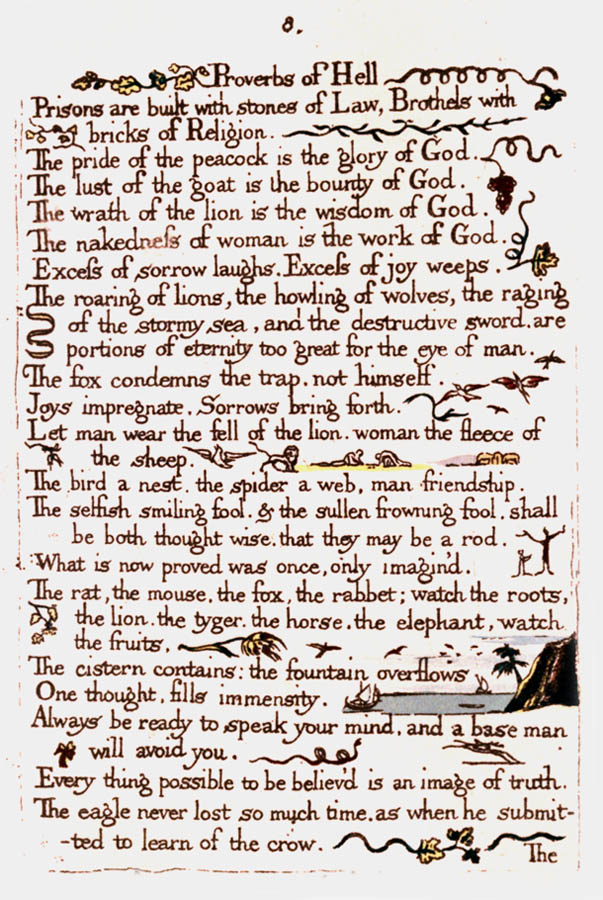 8.
Proverbs of Hell
Prisons are built with stones of Law, Brothels with
bricks of Religion.
The pride of the peacock is the glory of God.
The lust of the goat is the bounty of God.
The wrath of the lion is the wisdom of God.
The nakedneſs of woman is the work of God.
Exceſs of sorrow laughs. Exceſs of joy weeps.
The roaring of lions, the howling of wolves, the raging
of the stormy sea, and the destructive sword. are
portions of eternity too great for the eye of man.
The fox condemns the trap. not himself.
Joys impregnate. Sorrows bring forth.
Let man wear the fell of the lion. woman the fleece of
the sheep.
The bird a nest. the spider a web, man friendship.
The selfish smiling fool. & the sullen frowning fool. shall
be both thought wise. that they may be a rod.
What is now proved was once, only imagin'd.
The rat, the mouse. the fox, the rabbet; watch the roots,
the lion. the tyger. the horse. the elephant, watch
the fruits.
The cistern contains: the fountain overflows
One thought. fills immensity.
Always be ready to speak your mind, and a base man
will avoid you.
Every thing possible to be believ'd is an image of truth.
The eagle never lost so much time. as when he submit-
-ted to learn of the crow.
The